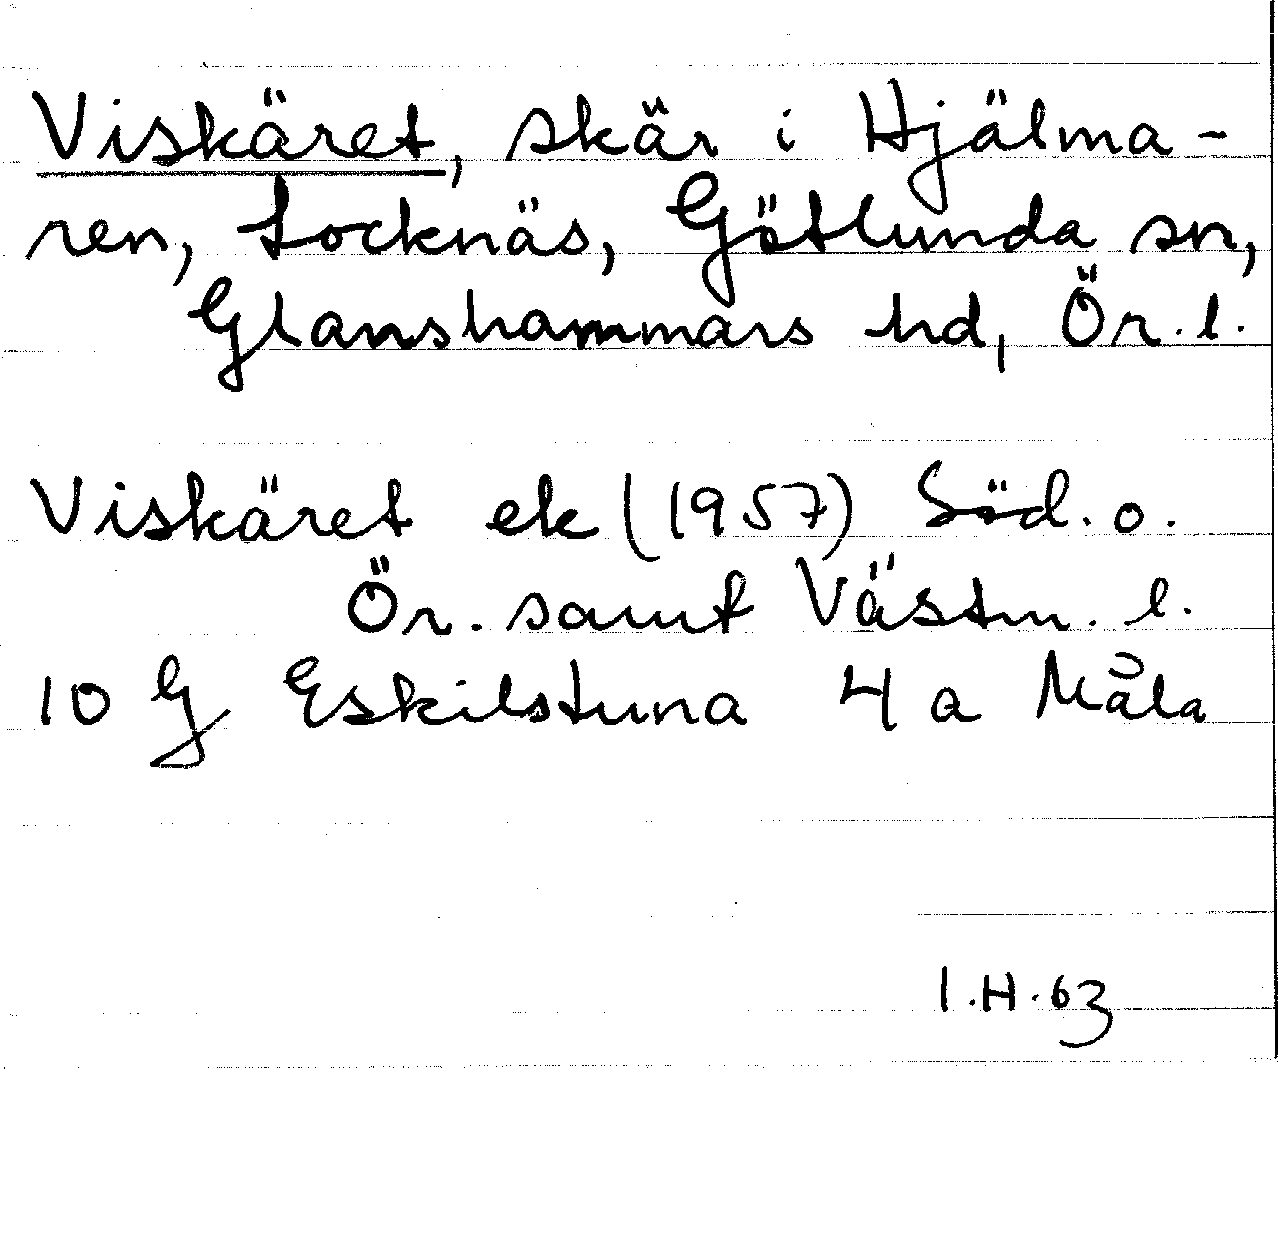 Viskäret, skär i Hjälma-
ren, Locknäs, Götlunda sn,
Glanshammars hd, Ör. l.
Viskäret ek (1957) Söd. o.
Ör. samt Västm. l.
10 G Eskilstuna 4 a Måla
I.H.63